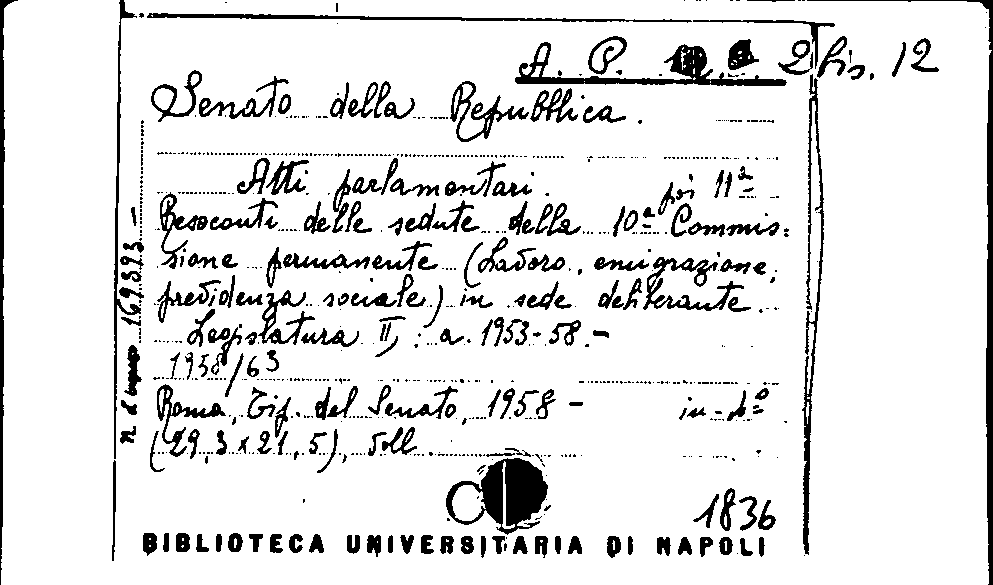 A. P. 2 bis. 12
Senato della Repubblica.
Atti parlamentari.
poi 11ª
Resoconti delle sedute della 10ª Commis=
sione permanente (Lavoro, emigrazione,
previdenza sociale) in sede deliberante.
Legislatura II, : a. 1953-58.-
1958/63
Roma, Tip. del Senato, 1958 - in-4º
(29,3 x 21,5), voll.
n. d'ingresso 169393 -
1836
BIBLIOTECA UNIVERSITARIA DI NAPOLI